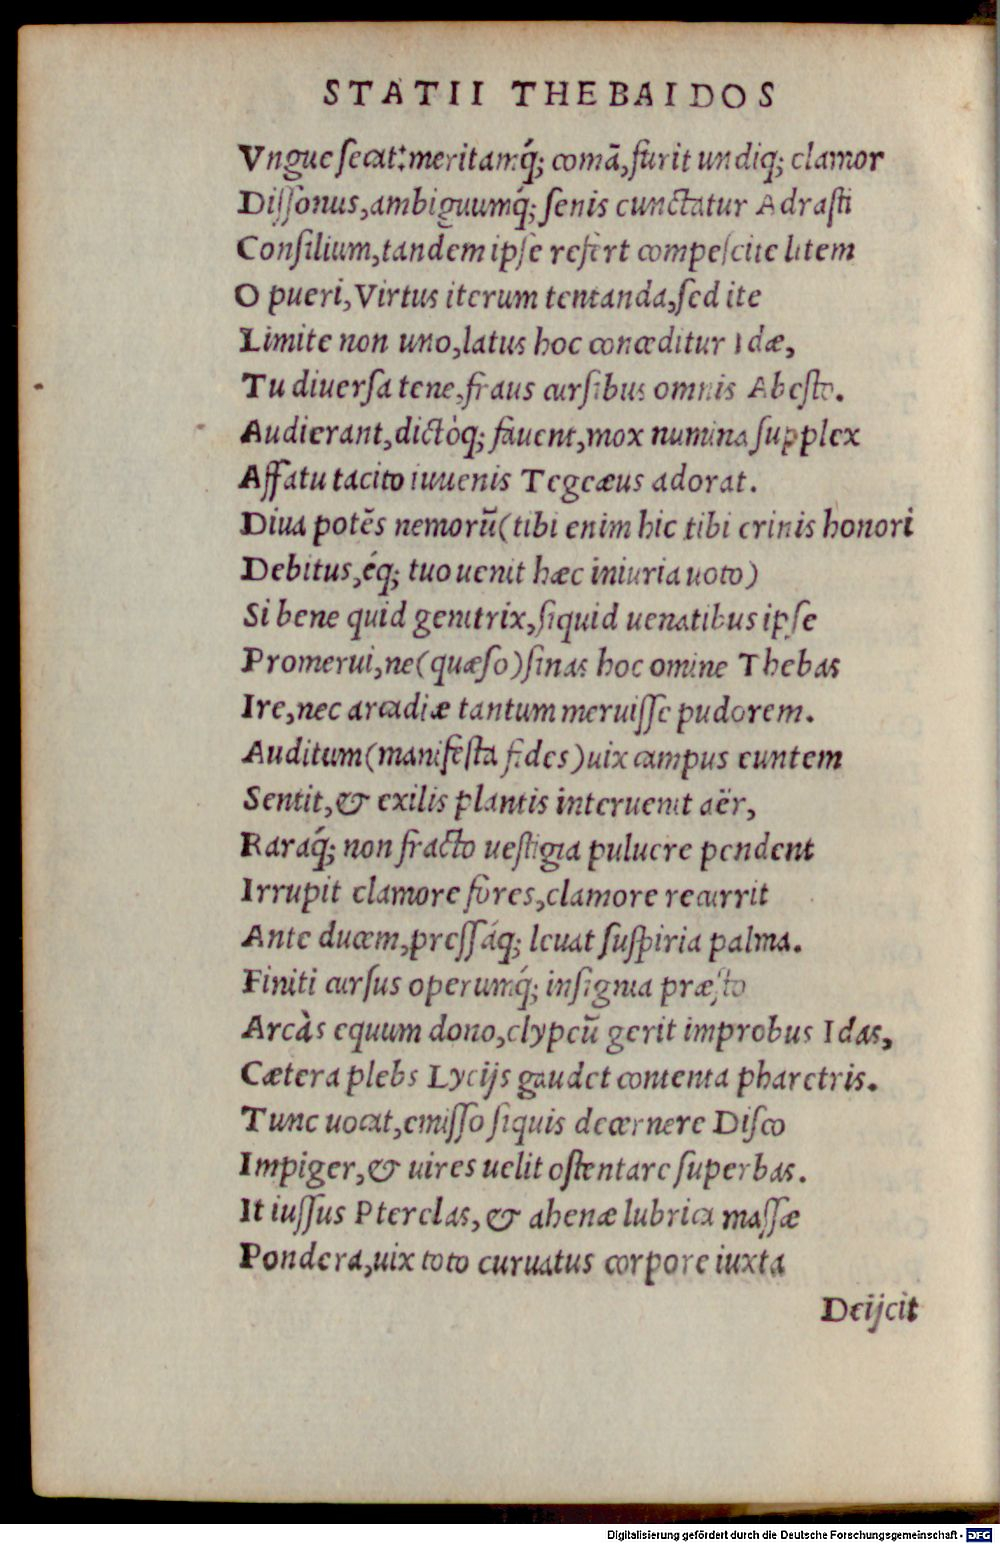 STATII THEBAIDOS
Vngue ſecat: meritamq́; comā, furit undiq; clamor
Diſſonus, ambiguumq́; ſenis cunctatur Adraſti
Conſilium, tandem ipſe refert compeſcite litem
O pueri, Virtus iterum tentanda, ſed ite
Limite non uno, latus hoc conceditur Idæ,
Tu diuerſa tene, fraus curſibus omnis Abeſto.
Audierant, dictòq; fauent, mox numina ſupplex
Affatu tacito iuuenis Tegeæus adorat.
Diua potēs nemorū (tibi enim hic tibi crinis honori
Debitus, éq; tuo uenit hæc iniuria uoto)
Si bene quid genitrix, ſiquid uenatibus ipſe
Promerui, ne (quæſo) ſinas hoc omine Thebas
Ire, nec arcadiæ tantum meruiſſe pudorem.
Auditum (manifeſta fides) uix campus euntem
Sentit, & exilis plantis interuenit aër,
Raraq́; non fracto ueſtigia puluere pendent
Irrupit clamore fores, clamore recurrit
Ante ducem, preſſáq; leuat ſuſpiria palma.
Finiti curſus operumq́; inſignia præſto
Arcàs equum dono, clypeū gerit improbus Idas,
Cætera plebs Lycijs gaudet contenta pharetris.
Tunc uocat, emiſſo ſiquis decernere Diſco
Impiger, & uires uelit oſtentare ſuperbas.
It iuſſus Pterelas, & ahenæ lubrica maſſæ
Pondera, uix toto curuatus corpore iuxta
Deijcit
Digitalisierung gefördert durch die Deutsche Forschungsgemeinschaft - DFG